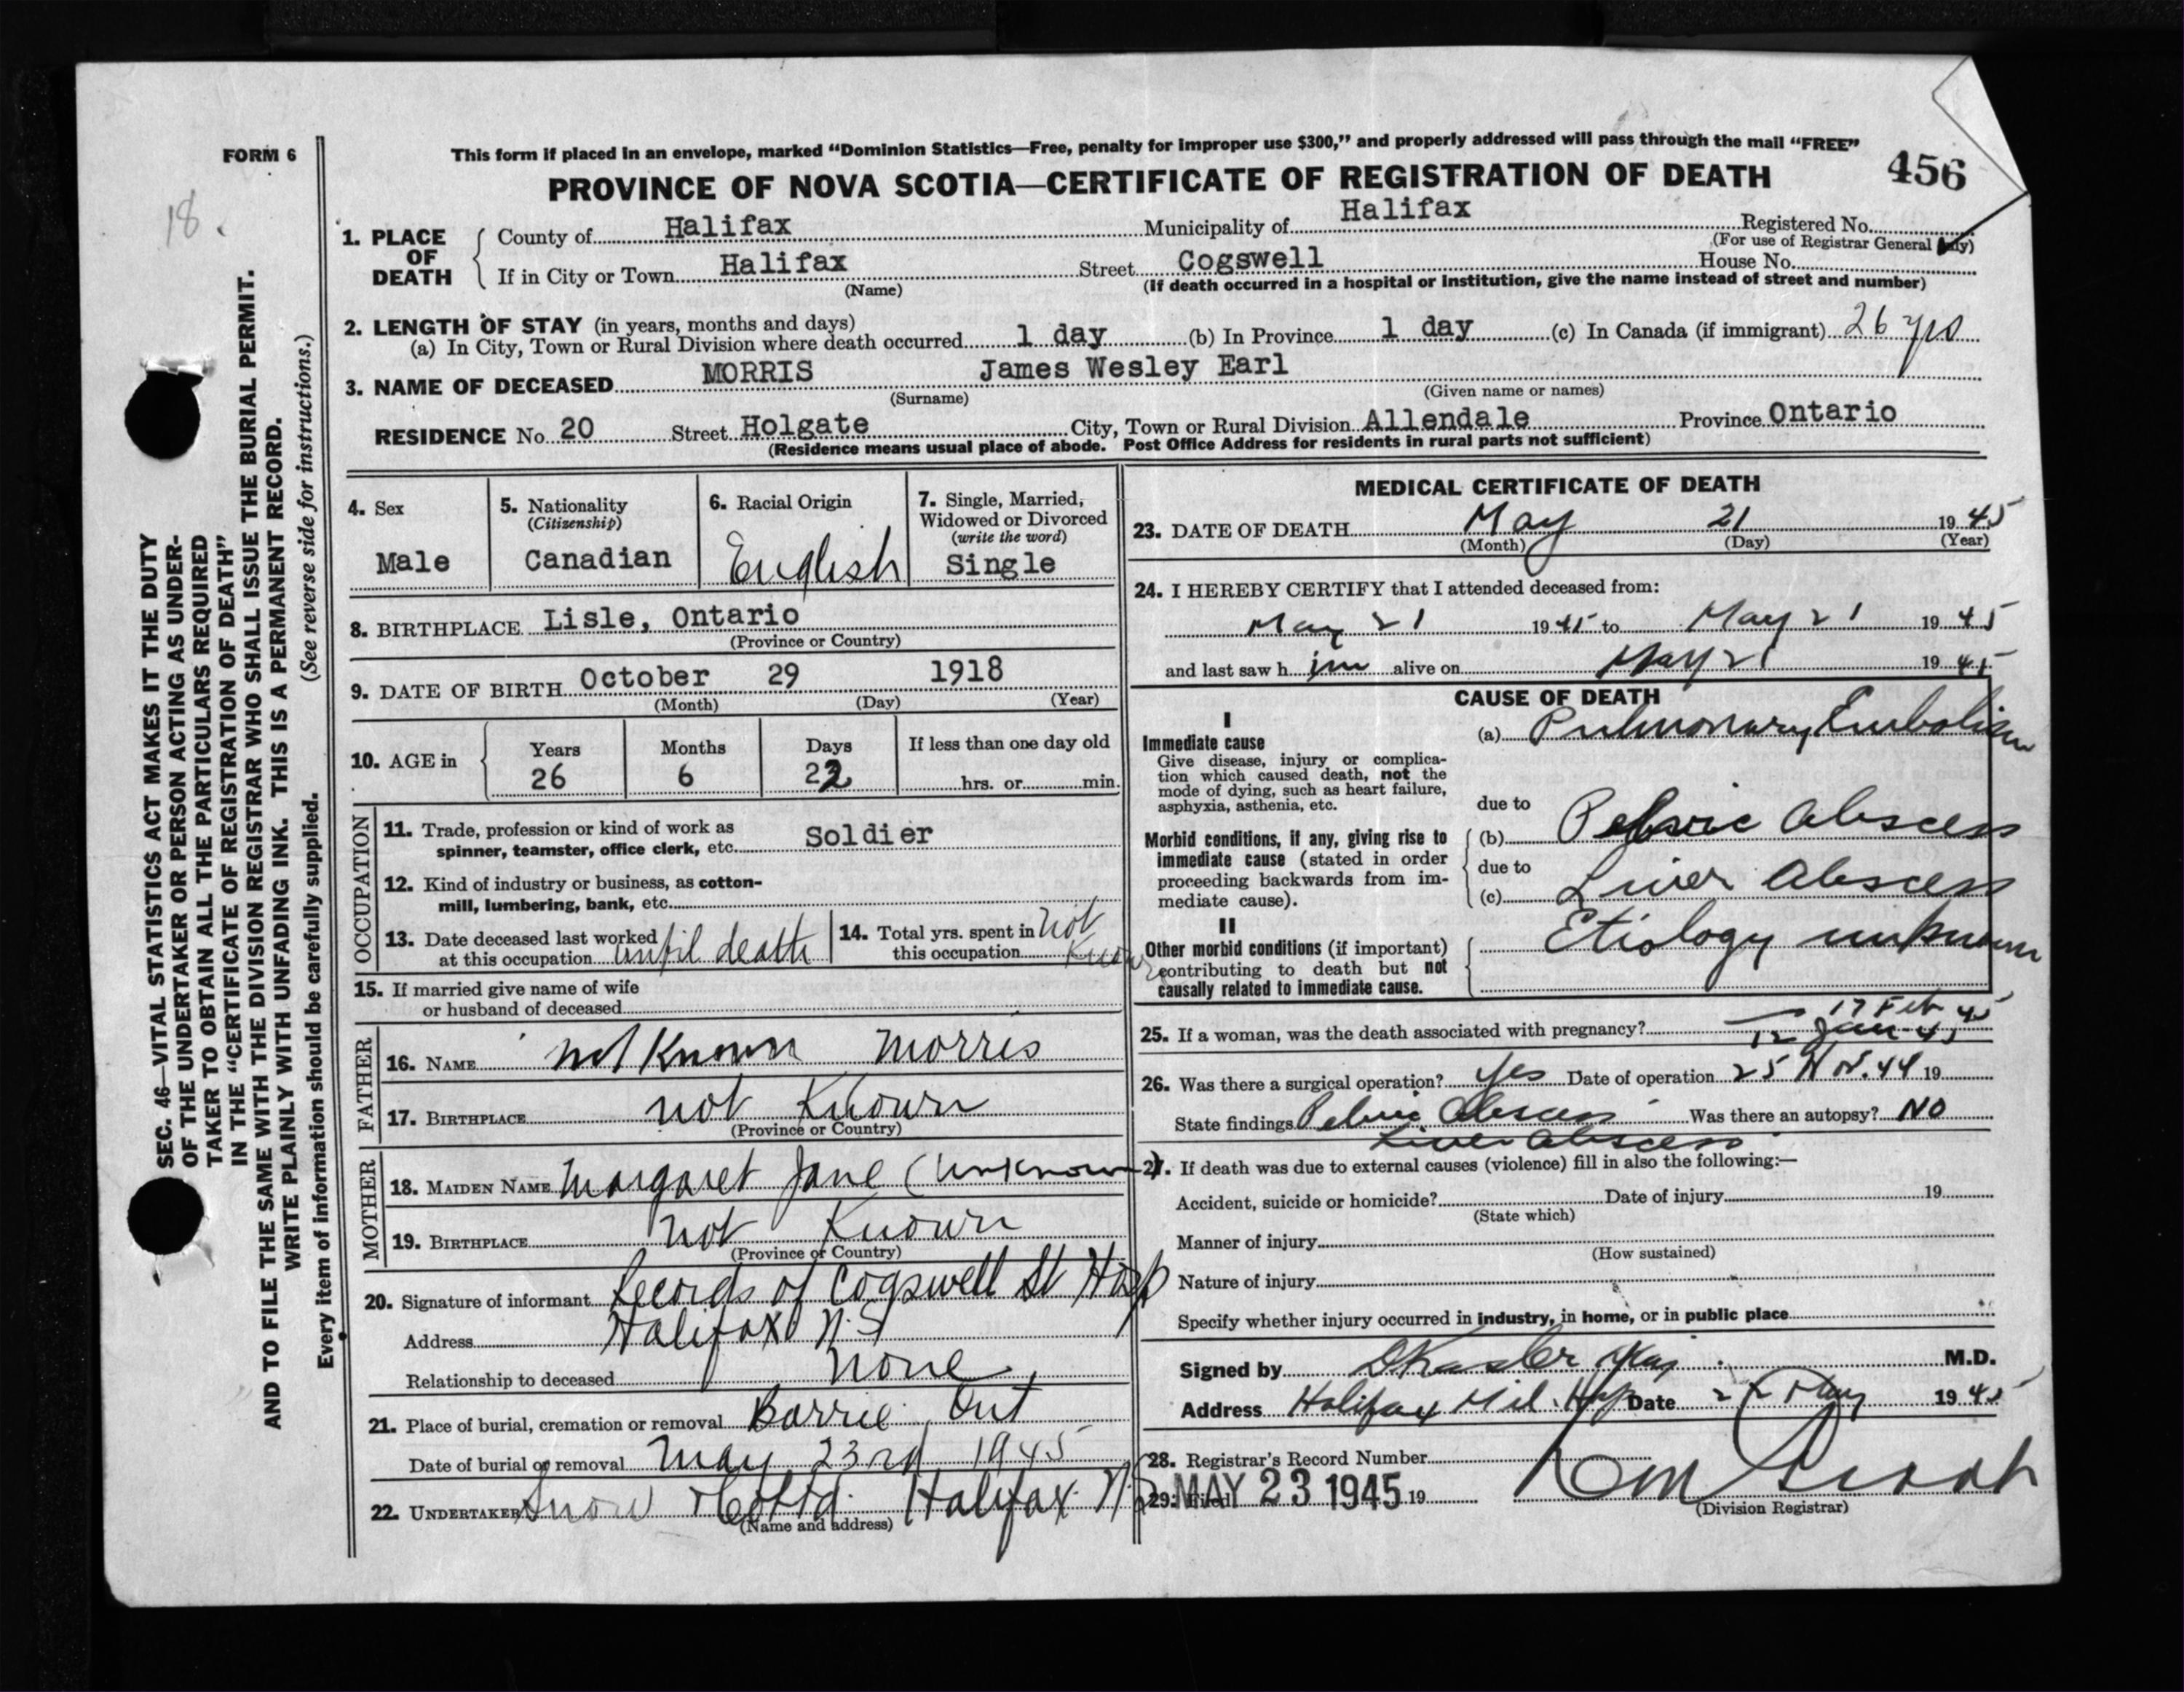 FORM 6
18.
This form if placed in an envelope, marked “Dominion Statistics—Free, penalty for improper use $300,” and properly addressed will pass through the mail “FREE”
PROVINCE OF NOVA SCOTIA—CERTIFICATE OF REGISTRATION OF DEATH
456
SEC. 46—VITAL STATISTICS ACT MAKES IT THE DUTY
OF THE UNDERTAKER OR PERSON ACTING AS UNDER-
TAKER TO OBTAIN ALL THE PARTICULARS REQUIRED
IN THE “CERTIFICATE OF REGISTRATION OF DEATH”
AND TO FILE THE SAME WITH THE DIVISION REGISTRAR WHO SHALL ISSUE THE BURIAL PERMIT.
WRITE PLAINLY WITH UNFADING INK. THIS IS A PERMANENT RECORD.
Every item of information should be carefully supplied. (See reverse side for instructions.)
1. PLACE OF DEATH
County of Halifax Municipality of Halifax Registered No.
(For use of Registrar General only)
If in City or Town Halifax Street Cogswell House No.
(Name) (If death occurred in a hospital or institution, give the name instead of street and number)
2. LENGTH OF STAY (in years, months and days)
(a) In City, Town or Rural Division where death occurred 1 day (b) In Province 1 day (c) In Canada (if immigrant) 26 yrs
3. NAME OF DECEASED MORRIS James Wesley Earl
(Surname) (Given name or names)
RESIDENCE No. 20 Street Holgate City, Town or Rural Division Allendale Province Ontario
(Residence means usual place of abode. Post Office Address for residents in rural parts not sufficient)
4. Sex
Male
5. Nationality
(Citizenship)
Canadian
6. Racial Origin
English
7. Single, Married,
Widowed or Divorced
(write the word)
Single
8. BIRTHPLACE Lisle, Ontario
(Province or Country)
9. DATE OF BIRTH October 29 1918
(Month) (Day) (Year)
10. AGE in
Years Months Days If less than one day old
26 6 22 hrs. or min.
OCCUPATION
11. Trade, profession or kind of work as
spinner, teamster, office clerk, etc. Soldier
12. Kind of industry or business, as cotton-
mill, lumbering, bank, etc.
13. Date deceased last worked
at this occupation until death
14. Total yrs. spent in not
this occupation Known
15. If married give name of wife
or husband of deceased
FATHER
16. NAME not Known Morris
17. BIRTHPLACE not Known
(Province or Country)
MOTHER
18. MAIDEN NAME Margaret Jane (Unknown)
19. BIRTHPLACE not Known
(Province or Country)
20. Signature of informant Records of Cogswell St Hosp
Address Halifax N.S
Relationship to deceased None
21. Place of burial, cremation or removal Barrie, Ont
Date of burial or removal May 23rd 1945
22. UNDERTAKER Snow & Co Ltd. Halifax N.S
(Name and address)
MEDICAL CERTIFICATE OF DEATH
23. DATE OF DEATH May 21 1945
(Month) (Day) (Year)
24. I HEREBY CERTIFY that I attended deceased from:
May 21 1945 to May 21 1945
and last saw h im alive on May 21 1945
CAUSE OF DEATH
I
Immediate cause
Give disease, injury or complica-
tion which caused death, not the
mode of dying, such as heart failure,
asphyxia, asthenia, etc.
(a) Pulmonary Embolism
due to
Morbid conditions, if any, giving rise to
immediate cause (stated in order
proceeding backwards from im-
mediate cause).
(b) Pelvic Abscess
due to
(c) Liver Abscess
II
Other morbid conditions (if important)
contributing to death but not
causally related to immediate cause.
Etiology unknown
17 Feb 45
25. If a woman, was the death associated with pregnancy? 12 Jan 45
26. Was there a surgical operation? Yes Date of operation 25 Nov. 44 19
State findings Pelvic Abscess Was there an autopsy? NO
Liver Abscess
27. If death was due to external causes (violence) fill in also the following:—
Accident, suicide or homicide? Date of injury 19
(State which)
Manner of injury
(How sustained)
Nature of injury
Specify whether injury occurred in industry, in home, or in public place
Signed by Maj M.D.
Address Halifax Mil. Hosp Date 22 May 1945
28. Registrar's Record Number
29. Filed MAY 23 1945 19
(Division Registrar)